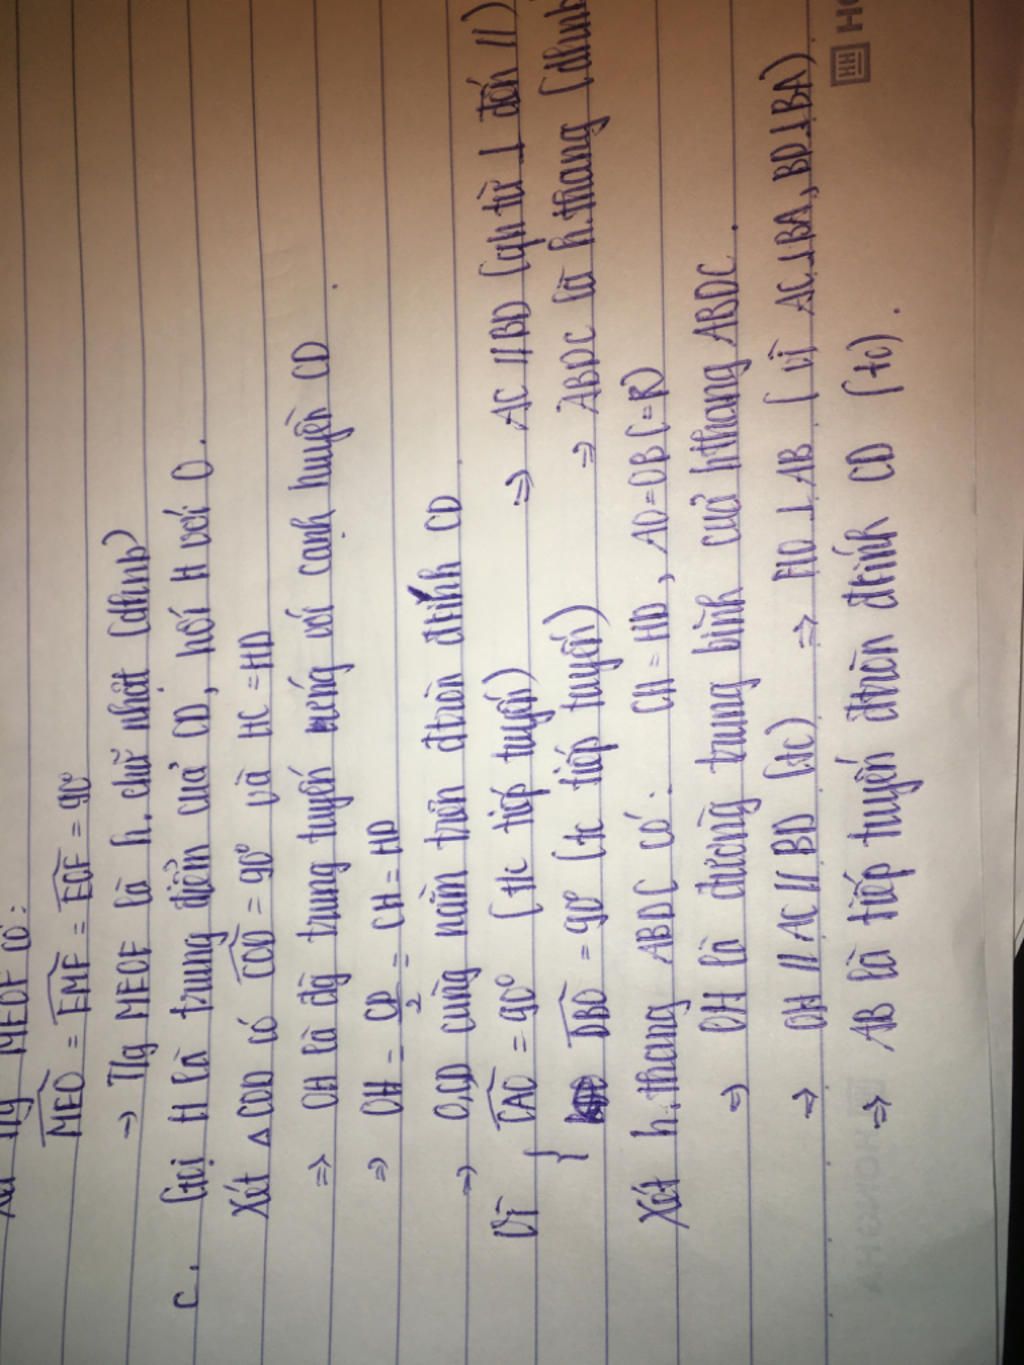 Tg MEOF có:
MEO = EMF = EOF = 90°
→ Tg MEOF là h.chữ nhật (dhnb)
c. Gọi H là trung điểm của CD, nối H với O.
Xét △COD có COD = 90° và HC = HD
⇒ OH là đg trung tuyến ứng với cạnh huyền CD
⇒ OH = CD/2 = CH = HD
⇒ O,C,D cùng nằm trên đtròn đkính CD
Vì { CAO = 90° (tc tiếp tuyến) ⇒ AC // BD (qh từ ⊥ đến //)
DBO = 90° (tc tiếp tuyến) ⇒ ABDC là h.thang (dhnb
Xét h.thang ABDC có: CH = HD, AO = OB (=R)
⇒ OH là đường trung bình của hthang ABDC.
⇒ OH // AC // BD (tc) ⇒ HO ⊥ AB (vì AC⊥BA, BD⊥BA)
⇒ AB là tiếp tuyến đtròn đkính CD (tc).
HONG HA
HH HO